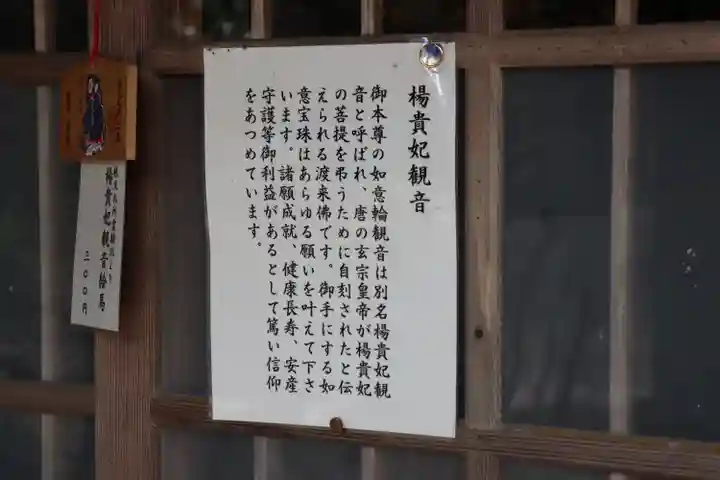 楊貴妃観音
御本尊の如意輪観音は別名楊貴妃観
音と呼ばれ、唐の玄宗皇帝が楊貴妃
の菩提を弔うために自刻されたと伝
えられる渡来佛です。御手にする如
意宝珠はあらゆる願いを叶えて下さ
います。諸願成就、健康長寿、安産
守護等御利益があるとして篤い信仰
をあつめています。
楊貴妃観音絵馬
三〇〇円